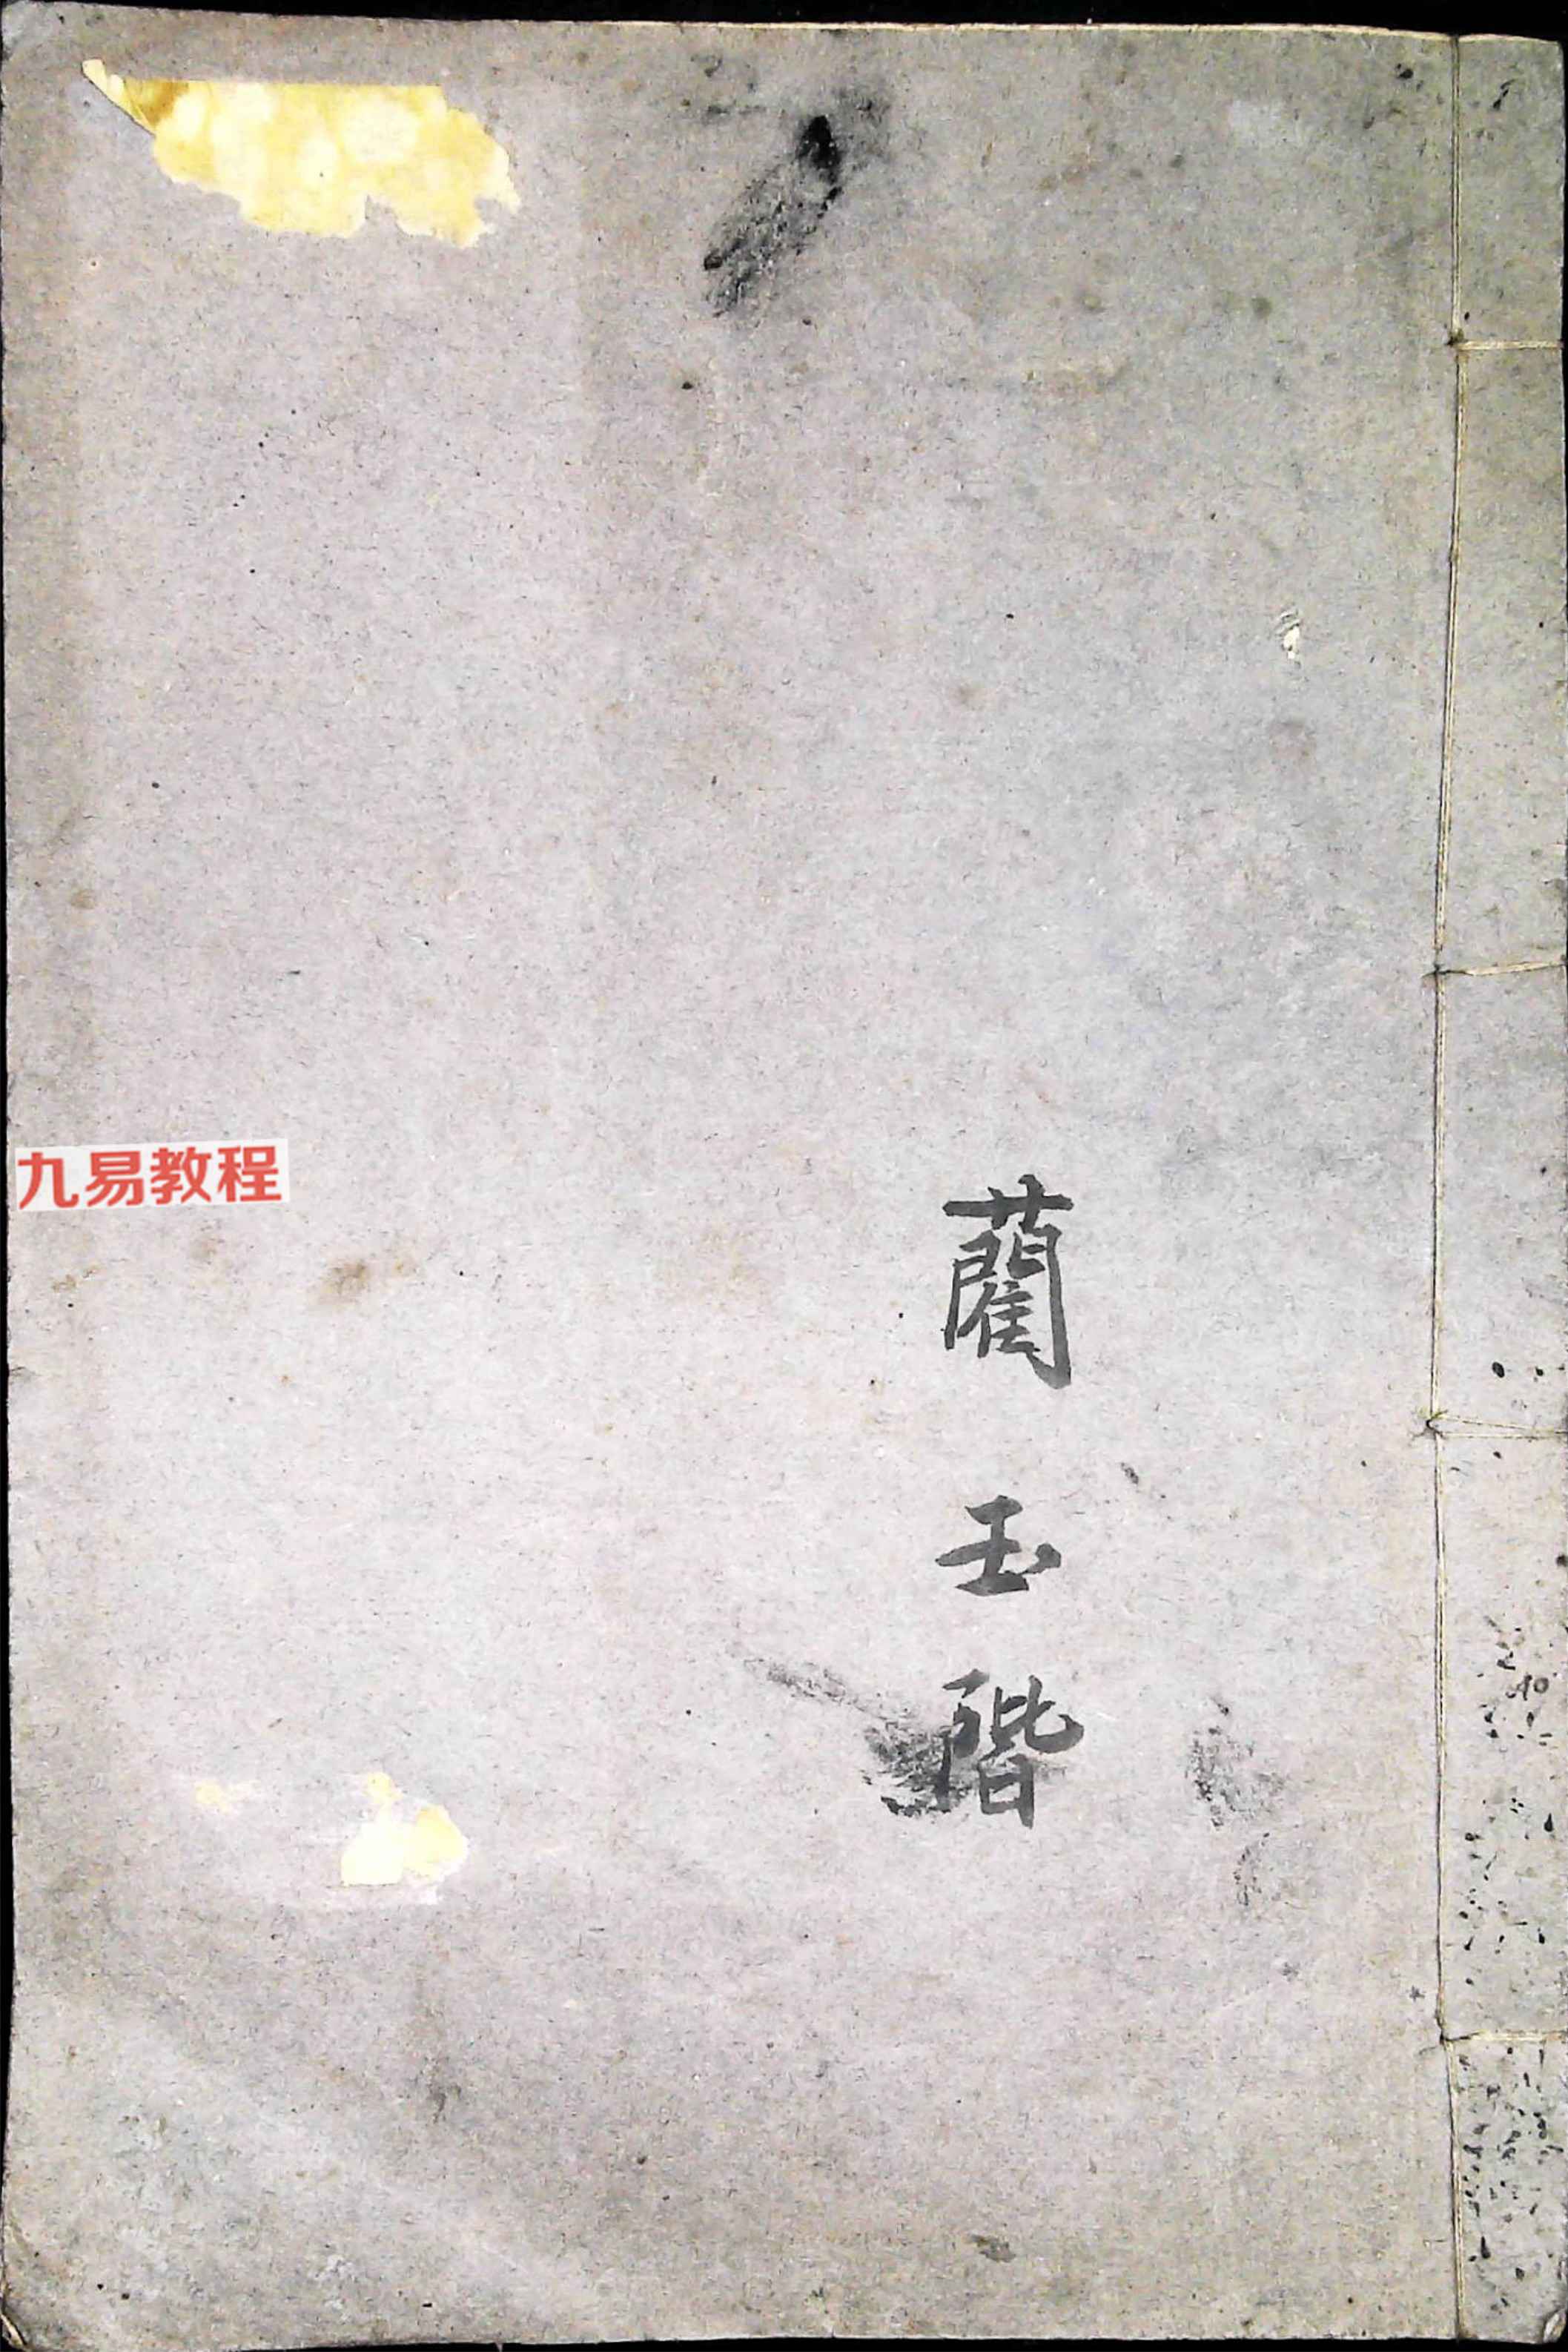 藺玉階
九易教程